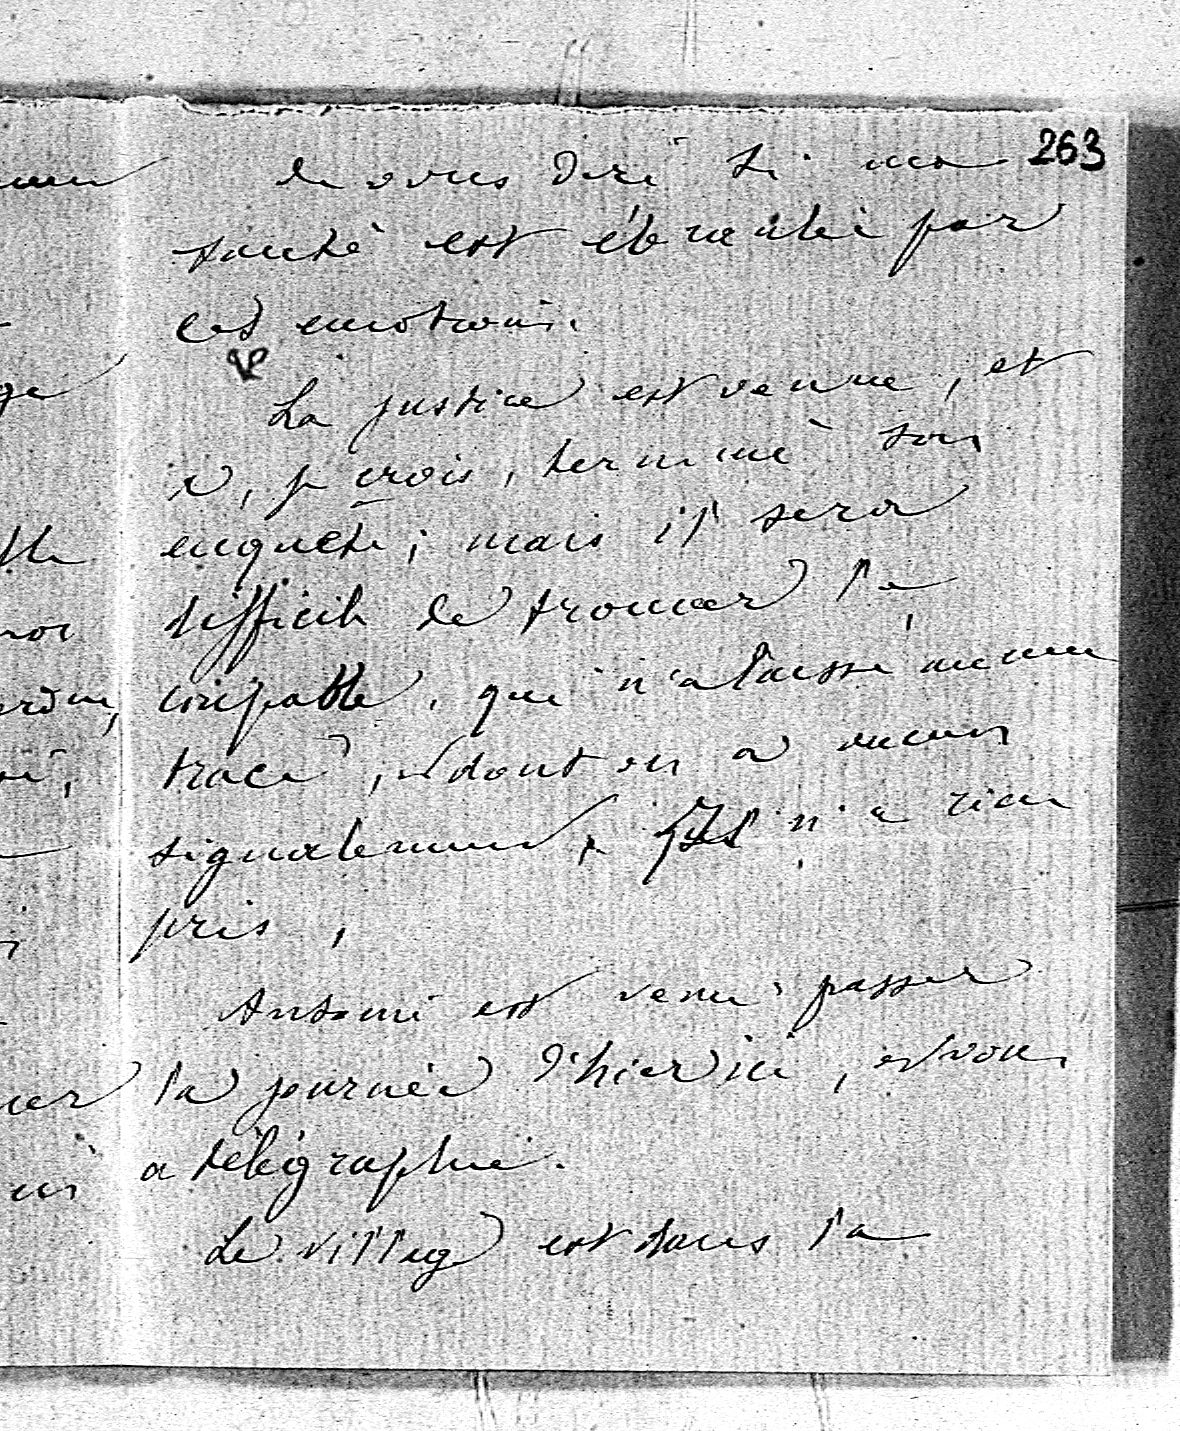 263
de vous dire si ma
santé est ébranlée par
ces émotions.
La justice est venue, et
a, je crois, terminé son
enquête; mais il sera
difficile de trouver le
coupable, qui n'a laissé aucune
trace, et dont on a aucun
signalement. Il n'a rien
pris.
Antoine est venu passer
la journée d'hier ici, et vous
a télégraphié.
Le village est dans la